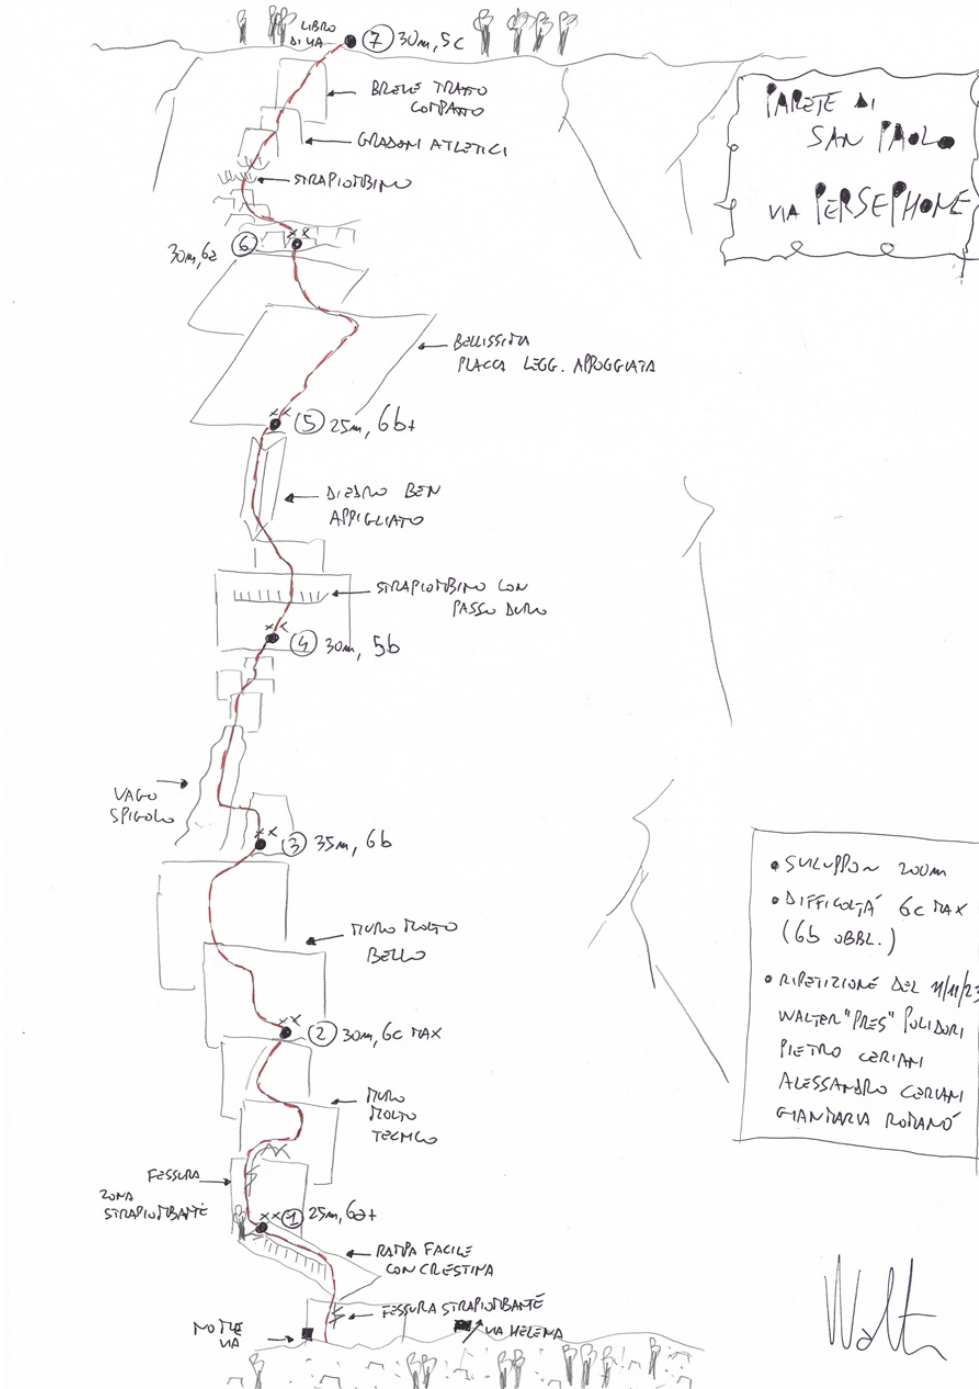 LIBRO
DI VIA
7 30m, 5c
BREVE TRATTO
COMPATTO
GRADONI ATLETICI
STRAPIOMBINO
PARETE DI
SAN PAOLO
VIA PERSEPHONE
6
30m, 6a
BELLISSIMA
PLACCA LEGG. APPOGGIATA
5 25m, 6b+
DIEDRO BEN
APPIGLIATO
STRAPIOMBINO CON
PASSO DURO
4 30m, 5b
VAGO
SPIGOLO
3 35m, 6b
MURO MOLTO
BELLO
2 30m, 6c MAX
MURO
MOLTO
TECNICO
FESSURA
ZONA
STRAPIOMBANTE
1 25m, 6a+
RAMPA FACILE
CON CRESTINA
FESSURA STRAPIOMBANTE
NOME
VIA
VIA HELENA
• SVILUPPO ~ 200m
• DIFFICOLTÀ 6c MAX
(6b OBBL.)
• RIPETIZIONE DEL 11/11/23
WALTER "PRES" POLIDORI
PIETRO CERIANI
ALESSANDRO CERIANI
GIANMARIA ROMANÒ
Walt